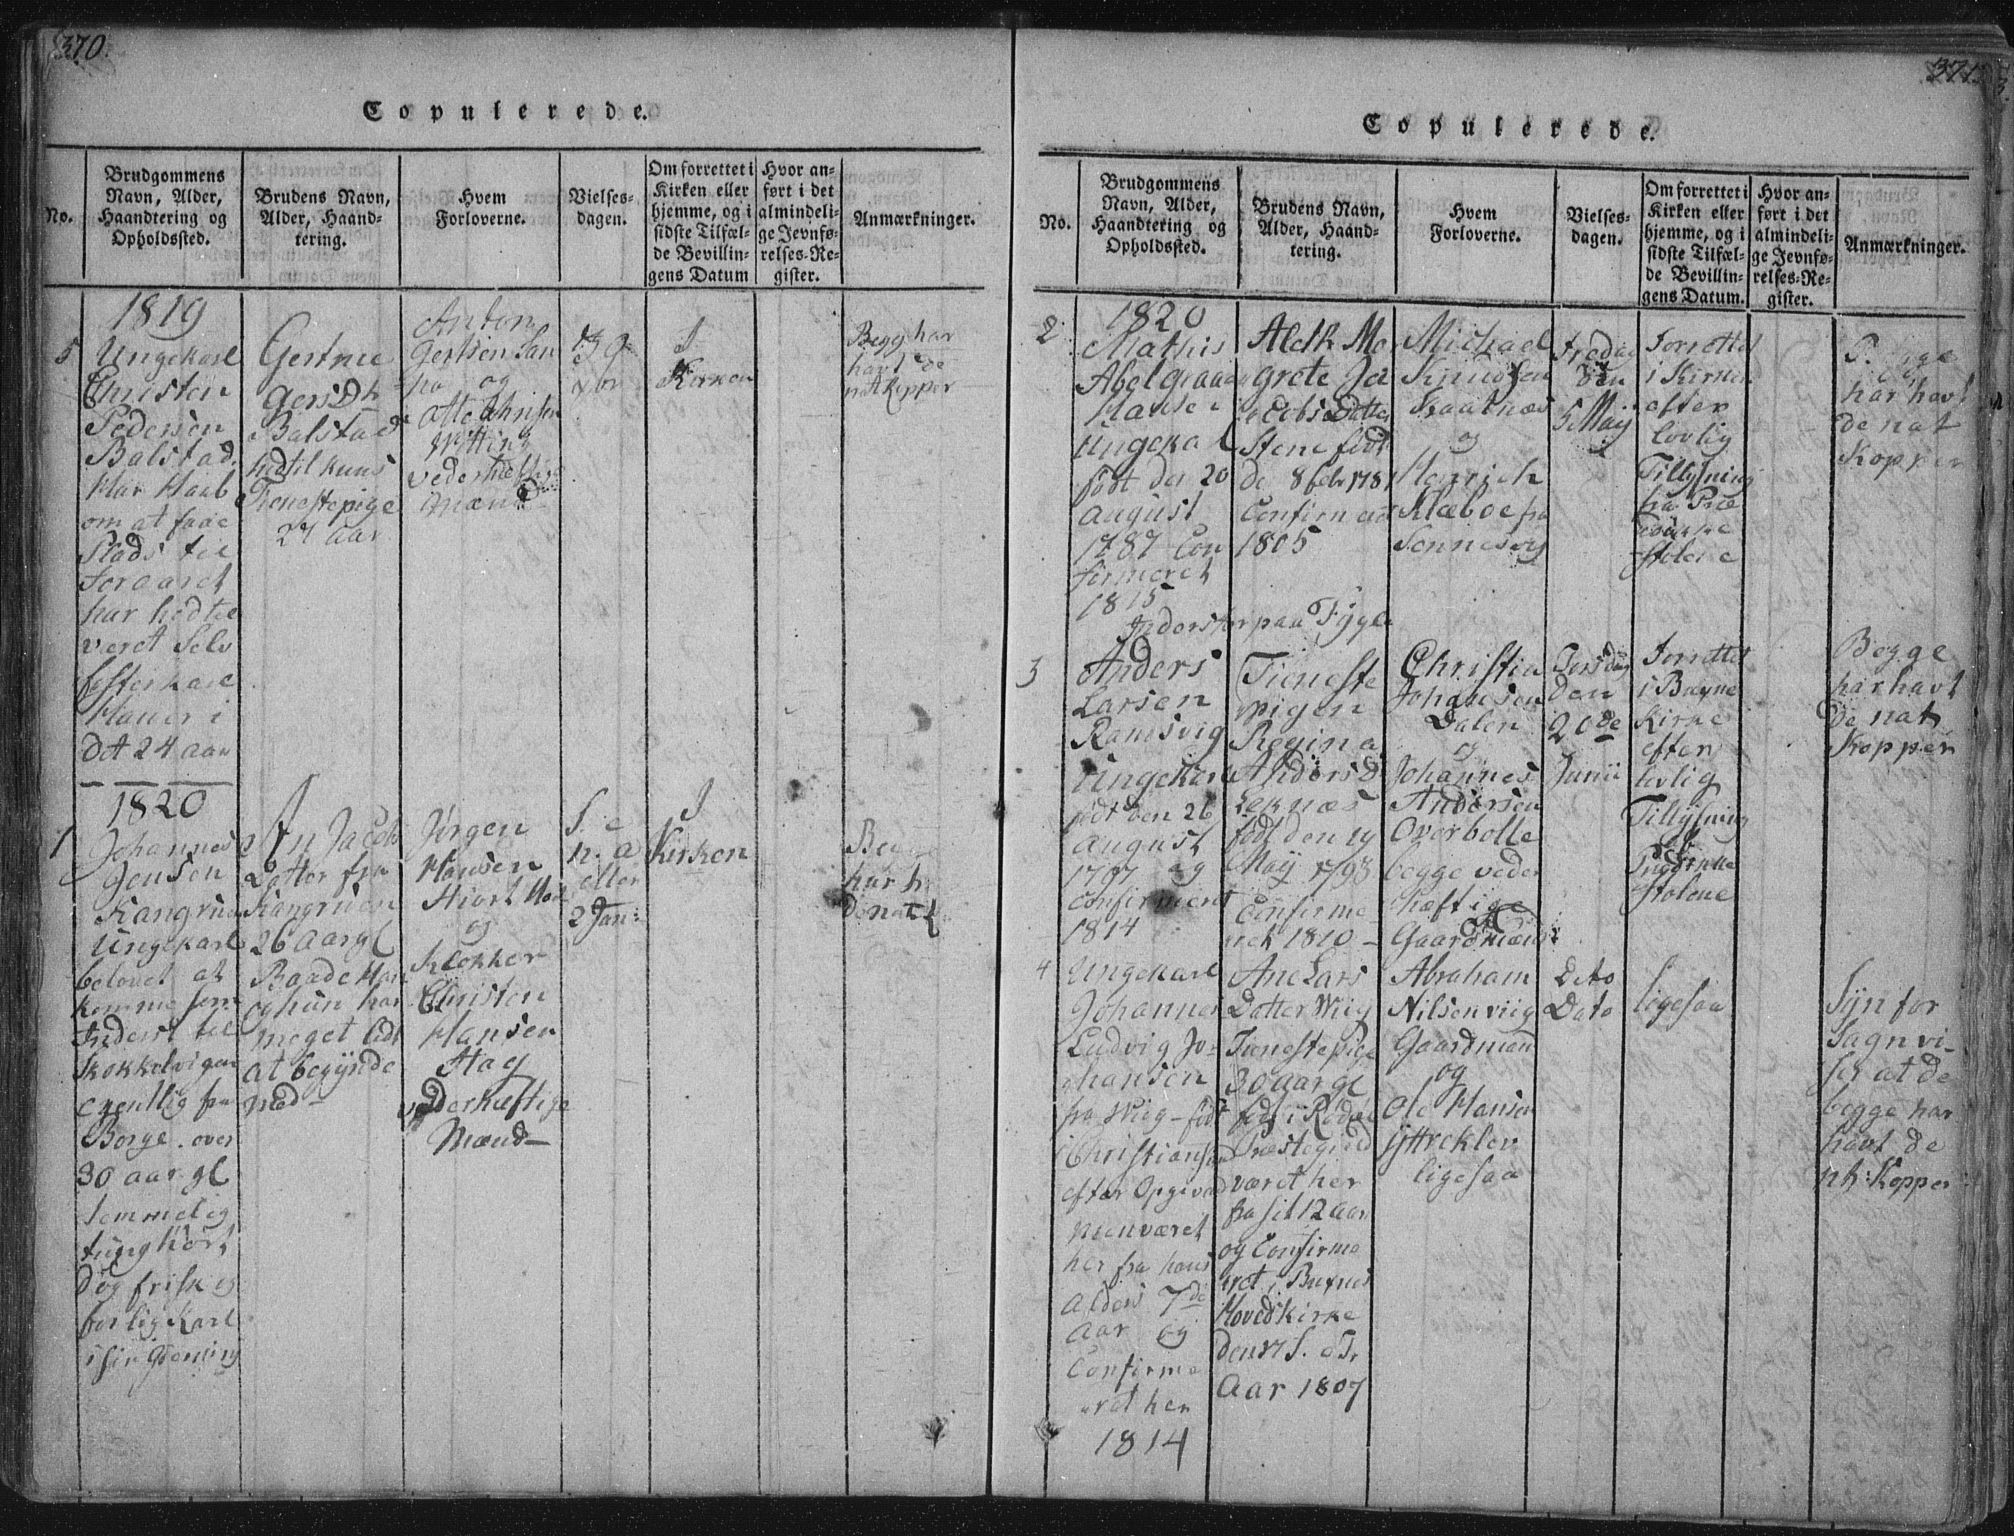 370.
Copulerede.
No.
Brudgommens
Navn, Alder,
Haandtering og
Opholdssted.
Brudens Navn,
Alder, Haand-
tering.
Hvem
Forloverne.
Vielses-
dagen.
Om forrettet i
Kirken eller
hjemme, og i
sidste Tilfæl-
de Bevillin-
gens Datum
Hvor an-
ført i det
almindeli-
ge Jevnfø-
relses-Re-
gister.
Anmærkninger.
1819
5
Ungekarl
Christen
Pedersen
Balstad
har Haab
om at faae
Plads til
Foraaret
har hidtil
været Selv
foster karl
Han er i
det 24 Aar
Gertrue
Gersdtr
Balstad
hidtil huus
Tienestepige
27 aar
Anton
Gertsen
og
Otte
vederhæftige
Mænd
I
Kirken
Begg har
havt de
nat kopper
1820
1
Johannes
Jensen
Kangruen
Ungekarl
belovet at
komme som
Inderst til
Skokkelvigen
egentlig fra
Borge. over
30 aar gl
temmelig
tunghørt
dog frisk og
før lig Karl
i sin Giering
An Jacobs
Datter fra
Kangruen
26 Aar gl
Baade Han
og hun har
meget lidt
at begynde
med
Jørgen
Hansen
og
Klokker
Christen
Hansen
Hag
vederhæftige
Mænd
S.
n. a
eller
2 Jan:
I
Kirken
har h
de nat
371.
Copulerede.
No.
Brudgommens
Navn, Alder,
Haandtering og
Opholdssted.
Brudens Navn,
Alder, Haand-
tering.
Hvem
Forloverne.
Vielses-
dagen.
Om forrettet i
Kirken eller
hjemme, og i
sidste Tilfæl-
de Bevillin-
gens Datum.
Hvor an-
ført i det
almindeli-
ge Jevnfø-
relses-Re-
gister.
Anmærkninger.
1820
2
Mathis
Abelgaard
Hansen
Ungekarl
født den 20
August
1787 Con
firmeret
1815
Inderster paa Fygle
Aleth Mar
grete Ja
cobs Datter
Stene født
de 8 febr 1781
Confirmeret
1805
Michael
Knudsen
og
Henrich
Klæboe fra
Sennesvig
fredag
den
5 May
Forrettet
i Kirken
efter
lovlig
Tillysning
fra Præ
dikke
stolene
har havt
de nat
Kopper
3
Anders
Larsen
Ramsvig
Ungekarl
født den 26
August
1797 og
confirmeret
1814
Tieneste
pigen
Regina
Andersd
Leknæs
født den 19
May 1793
Confirme-
ret 1810-
Christian
Johansen
Dalen
og
Johannes
Andersen
Overbolle
begge veder
hæftige
Gaardmænd
Torsdag
den
20de
Junii
Forrettet
i Buxne
Kirke
efter
lovlig
Tillysning
Prædikke
stolene
Begge
har havt
de nat
Kopper
4
Ungekarl
Johannes
Ludvig Jo-
hansen
fra Wiig-født
i Christiansund
efter Opgivend
men været
her fra hans
Alders 7de
Aar og
Confirme
ret her
1814
Ane Lars
Datter Wiig
Tienestepige
30 aar gl
født i Rødøe
Præstegield
været her
fra sit 12 Aar
og Confirme
ret i Buxnes
Hovedkirke
den 17 S. e Tr
Aar 1807
Abraham
Nilsen viig
Gaardmand
og
Ole Hansen
ligesaa
Dito
Dato
ligesaa
Syn for
Sagn vi-
ser at de
begge har
havt de
nk: Kopper